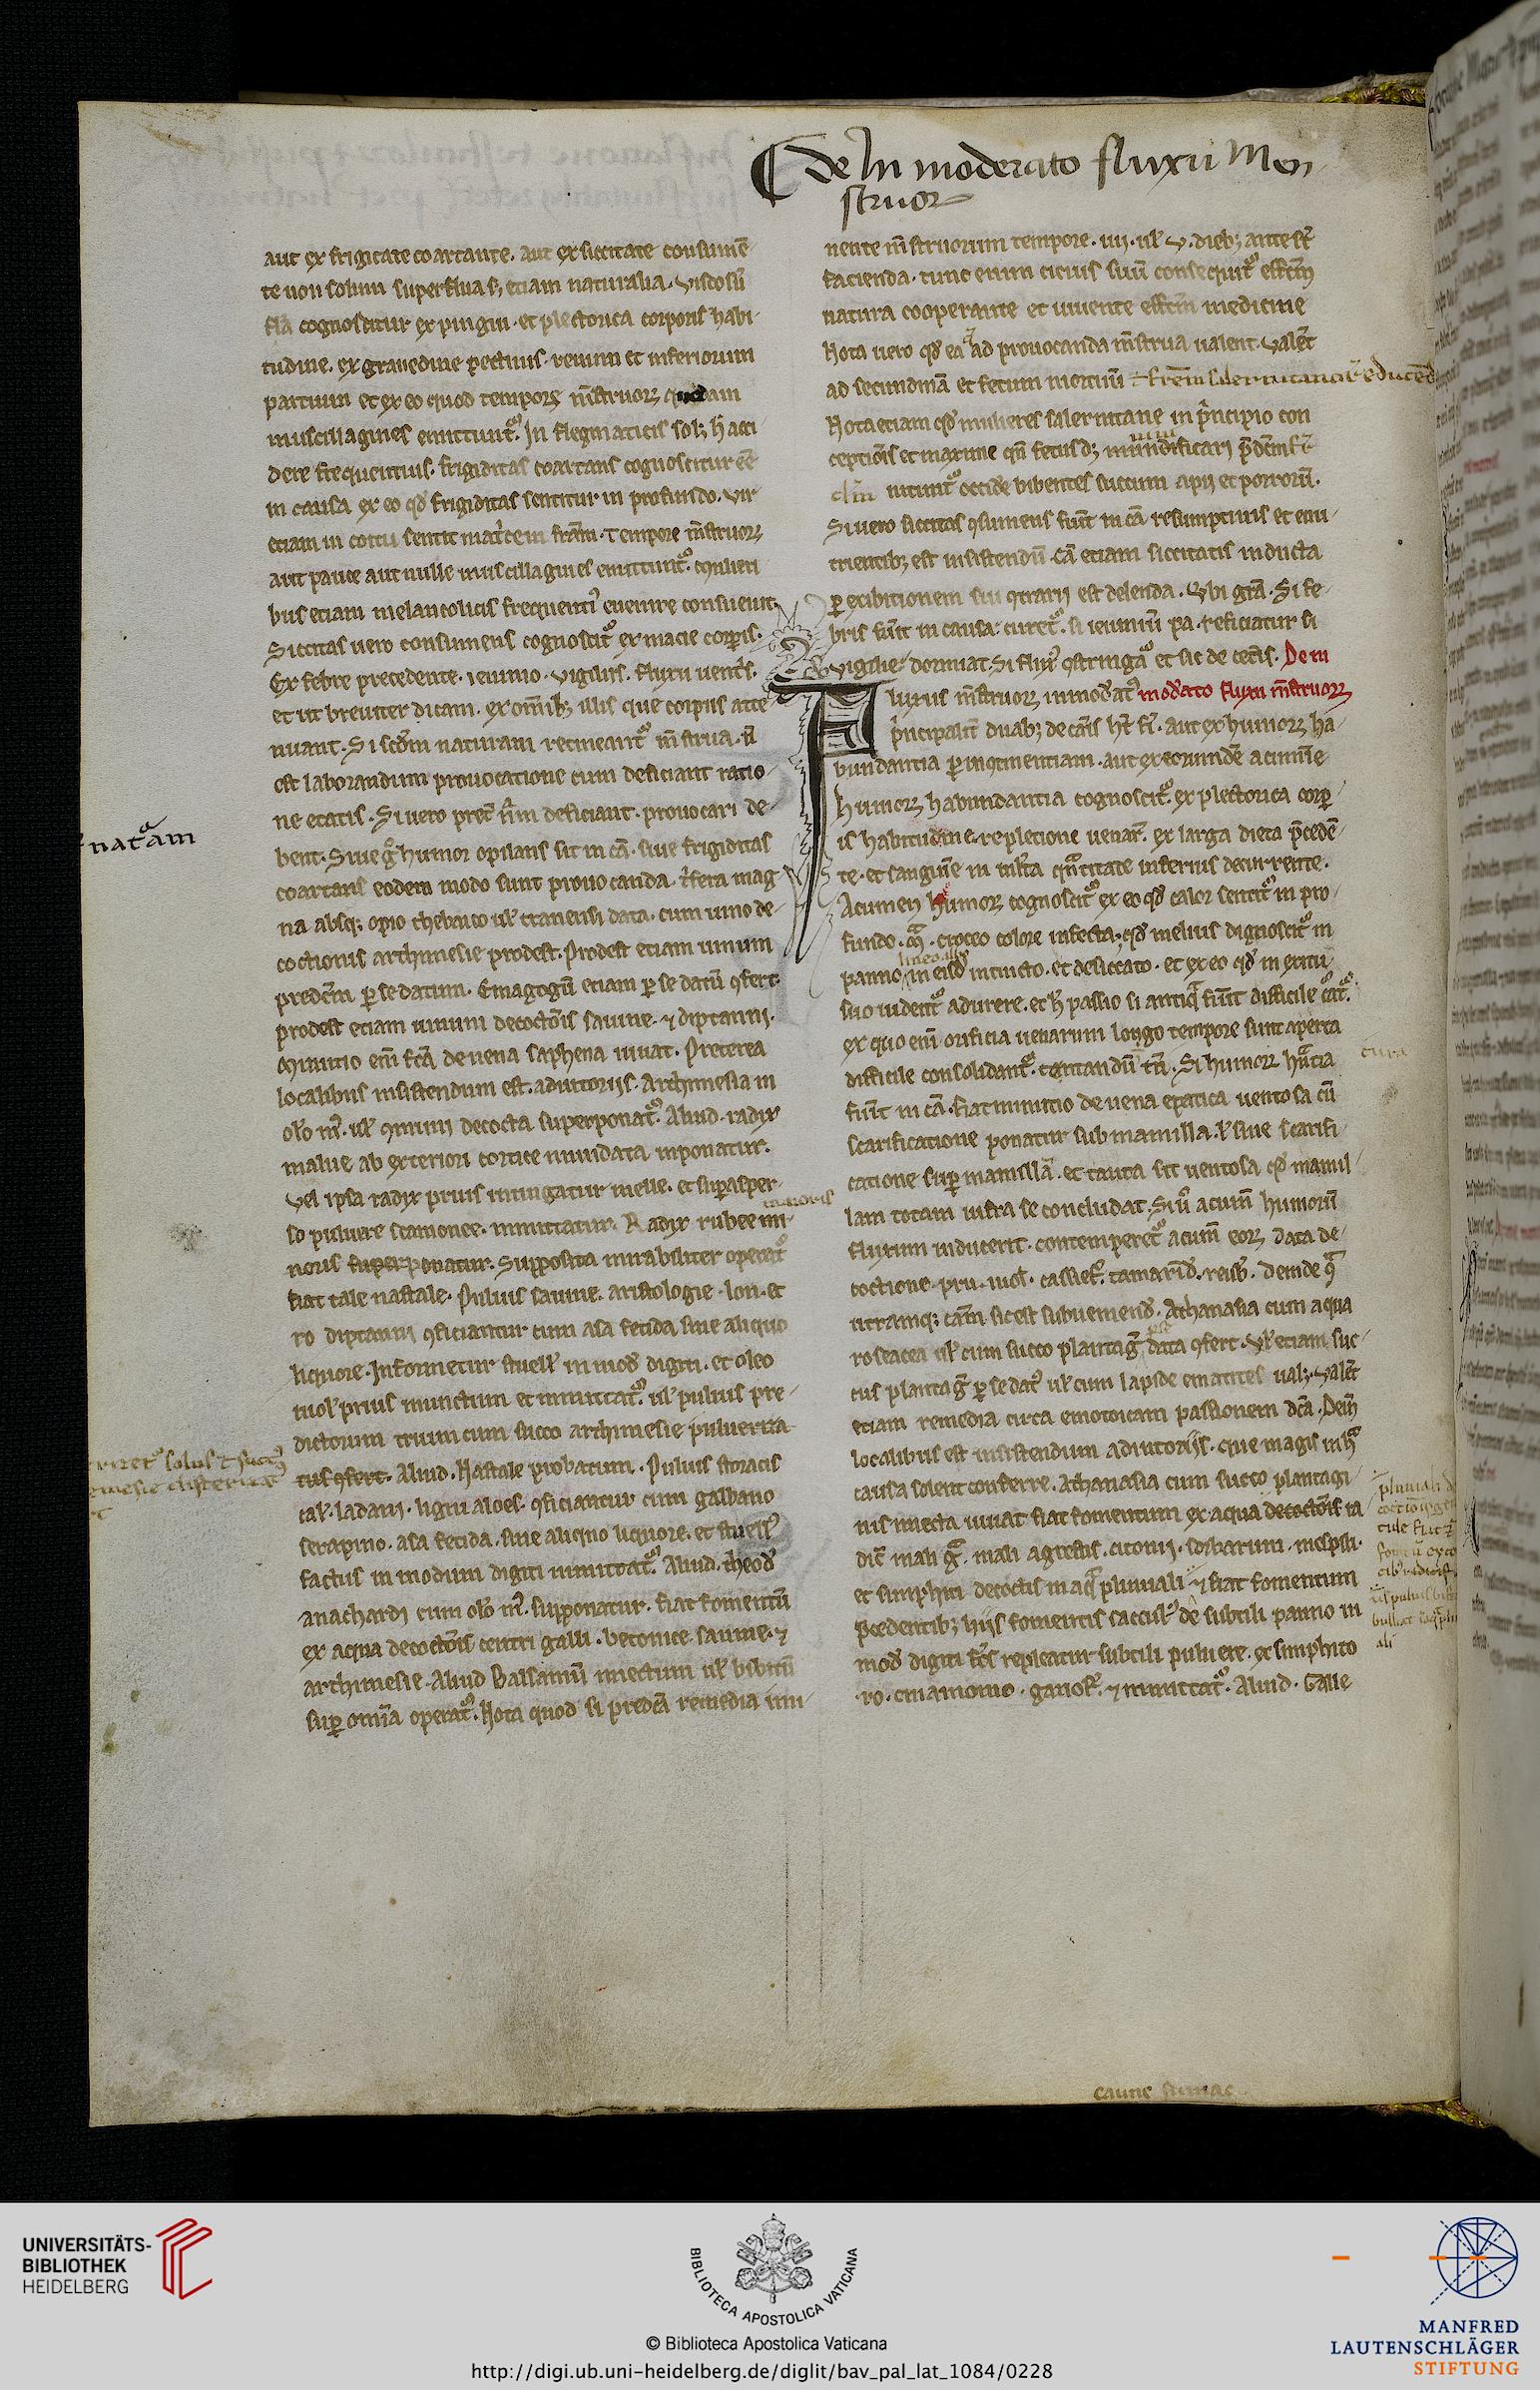 De Inmoderato fluxu Men
struor
aut ex frigitate coartante. aut ex siccitate consumē
te non solum superflua s; etiam naturalia. Viscosū
fla cognoscitur ex pingui et plectorica corporis habi
tudine. ex grauedine pectinis. renum et inferiorum
partium et ex eo quod tempore mstruorꝝ
muscillagines emittunt᷑. In flegmaticis sol; h̄ acci
dere frequentius. frigiditas coartans cognoscitur eē
in causa ex eo qd̄ frigiditas sentitur in profundo. vir
etiam in coitu sentit mat'cem fr̄am. Tempore mstruorꝝ
aut pauce aut nulle muscillagines emittunt᷑. mulieri
bus etiam melancolicis frequent' euenire consueuit
Siccitas uero consumens cognoscit᷑ ex macie corꝑis.
Ex febre precedente. ieiunio. vigiliis. fluxu uent's.
et ut breuiter dicam. ex omīb; illis que corpus atte
nuant. Si scdm naturam retineant᷑ mstrua. n̄
est laborandum prouocatione cum deficiant ratio
ne etatis. Si uero pret' n̄m deficiant. prouocari de
bent. Siue g° humor opilans sit in cā. siue frigiditas
coartans eodem modo sunt prouocanda. t'fera mag
na absq; opio thebaico ul' tranensi data. cum uino de
coctionis arthimesie prodest. Prodest etiam uinum
predc̄m ꝑ se datum. Emagogū etiam ꝑ se datū ꝯfert.
prodest etiam uinum decoctōis sauine. ⁊ diptanni.
Minutio em̄ fc̄a de uena saphena iuuat. Preterea
localibus insistendum est. adiutoriis. Arthimesia in
oło m'. ul' ꝯmuni decocta superponat᷑. Aliud. radix
malue ab exteriori cortice mundata inponatur.
Vel ipsa radix prius intingatur melle. et suꝑasper
so puluere scamonee. inmittatur. Radix rubee mi
noris supponatur. Supposita mirabiliter operat᷑
fiat tale nastale. Puluis sauine. aristologie. lon. et
ro diptanni ꝯficiantur cum asa fetida sine aliquo
liquore. Informetur stuell' in mod' digiti. et oleo
uiol' prius inunctum et inmittat᷑. ul' puluis pre
dictorum trium cum succo arthimesie puluerita
tus ꝯfert. Aliud. Nastale probatum. Puluis storacis
cal'. ladani. ligni aloes. ꝯficiantur cum galbano
serapino. asa fetida. sine aliquo liquore. et stuell'
factus in modum digiti inmittat᷑. Aliud. theod'
anachardi cum oło m'. supponatur. fiat fomentū
ex aqua decoctōis centri galli. betonice. sauine. ⁊
arthimesie. Aliud Balsamū iniectum ul' bibitū
suꝑ omīa operat᷑. Nota quod si predc̄a remedia imi
nat᷑am
nente mstruorum tempore. iiij. ul' v. dieb; ante st'
facienda. tunc enim citius suū consequit᷑ effctm̄
natura cooperante et iuuente effctm medicine
Nota uero qd̄ ea q̄ ad prouocanda mstrua ualent. Valēt
ad secundinā et fetum mortuū educēd
Nota etiam qd̄ mulieres salernitane in p'ncipio con
ceptiōis et maxime qn̄ fetus d; mundificari
nitunt᷑ occide bibentes succum apij et porrorū.
Si uero siccitas ꝯsumens fuit in cā resumptiuis et enu
trientib; est insistendū. Cā etiam siccitatis inducta
ꝑ exibitionem sui ꝯtrarij est delenda. Vbi gr̄a. Si fe
bris fuit in causa. curet᷑. si ieiuniū pa. reficiatur si
vigilie dormiat. Si flux' ꝯstringat᷑ et sic de cet'is. De in
moderato fluxu mstruorꝝ
Fluxus mstruorꝝ inmod'at'
p'ncipalit' duab; de cāis h̄t fi'. aut ex humorꝝ ha
bundantia ꝑ inꝯtinentiam. aut ex eorundē acumīe
humorꝝ habundantia cognoscit᷑. ex plectorica corꝑ
is habitudine. repletione uenar'. ex larga dieta p̄cedē
te. et sanguīe in ml'ta qn̄titate inferius decurrente.
Acumen humorꝝ cognoscit᷑ ex eo qd̄ calor sentit᷑ in pro
fundo. croceo colore infecta. qd̄ melius dignoscit᷑ in
panno lineo in eisd' intincto. et desiccato. et ex eo qd̄ in exitu
suo uident᷑ adurere. et h' passio si antiq̄ fuit difficile cāt᷑.
ex quo em̄ orificia uenarum longo tempore sunt aperta
difficile consolidant᷑. temptandū tn̄. Si humorꝝ hn̄tia
cura
fuit in cā. fiat minutio de uena epatica uentosa cū
scarificatione ponatur sub mamilla. ul' sine scarifi
catione suꝑ mamillā. et tanta sit uentosa qd̄ mamil
lam totam infra se concludat. Si u° acum̄ humorū
fluxum induxerit. contemperet᷑ acum̄ eorꝝ data de
coctione. pru. uiol'. cassief'. tamarīd'. reub'. deinde
utramq; cam̄ sic est subueniend'. Athanasia cum aqua
rosacea ul' cum succo plantag' data ꝯfert. Vl' etiam suc
cus plantag' ꝑ se dat' ul' cum lapide ematites ual;. Valēt
etiam remedia circa emotoicam passionem dc̄a. Dein̄
localibus est insistendum adiutorijs. que magis in hac
causa solent conferre. Athanasia cum succo plantagi
nis iniecta iuuat fiat fomentum ex aqua decoctōis ra
dic' mali g̃. mali agrestis. citonij. sorbarum. mespili.
et simphiti decoctis in aq̄ pluuiali ⁊ fiat fomentum
p̄cedentib; hijs fomentis saccul' de subtili panno in
mod' digiti fc̄s repleatur subtili puluere. ex simphito
ro. cinamomo. gariof'. ⁊ inmittat᷑. Aliud. Galle
UNIVERSITÄTS-
BIBLIOTHEK
HEIDELBERG
BIBLIOTECA APOSTOLICA VATICANA
© Biblioteca Apostolica Vaticana
http://digi.ub.uni-heidelberg.de/diglit/bav_pal_lat_1084/0228
MANFRED
LAUTENSCHLÄGER
STIFTUNG